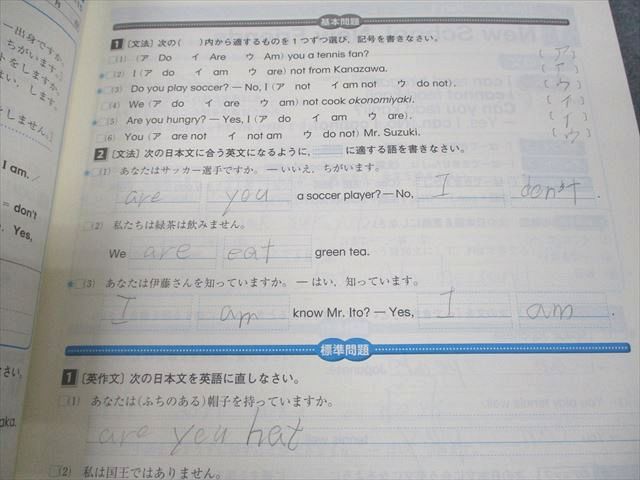 一出身ですか。
ちがいます。)
をしますか。
はい, します。
しません。)
I am.
= don't
Yes,
さい。
aka.
基本問題
1 〔文法〕次の( )内から適するものを1つずつ選び, 記号を書きなさい。
(1) (ア Do イ Are ウ Am) you a tennis fan? 〔 ア 〕
(2) I (ア do イ am ウ are) not from Kanazawa.
(3) Do you play soccer? — No, I (ア not イ am not ウ do not). 〔 ウ 〕
(4) We (ア do イ are ウ am) not cook okonomiyaki. 〔 イ 〕
(5) Are you hungry? — Yes, I (ア do イ am ウ are). 〔 イ 〕
(6) You (ア are not イ not am ウ do not) Mr. Suzuki. 〔 ウ 〕
2 〔文法〕次の日本文に合う英文になるように, に適する語を書きなさい。
(1) あなたはサッカー選手ですか。— いいえ, ちがいます。
are you a soccer player? — No, I don't .
(2) 私たちは緑茶は飲みません。
We are eat green tea.
(3) あなたは伊藤さんを知っていますか。— はい, 知っています。
I am know Mr. Ito? — Yes, I am .
標準問題
1 〔英作文〕次の日本文を英語に直しなさい。
(1) あなたは(ふちのある)帽子を持っていますか。
are you hat
(2) 私は国王ではありません。